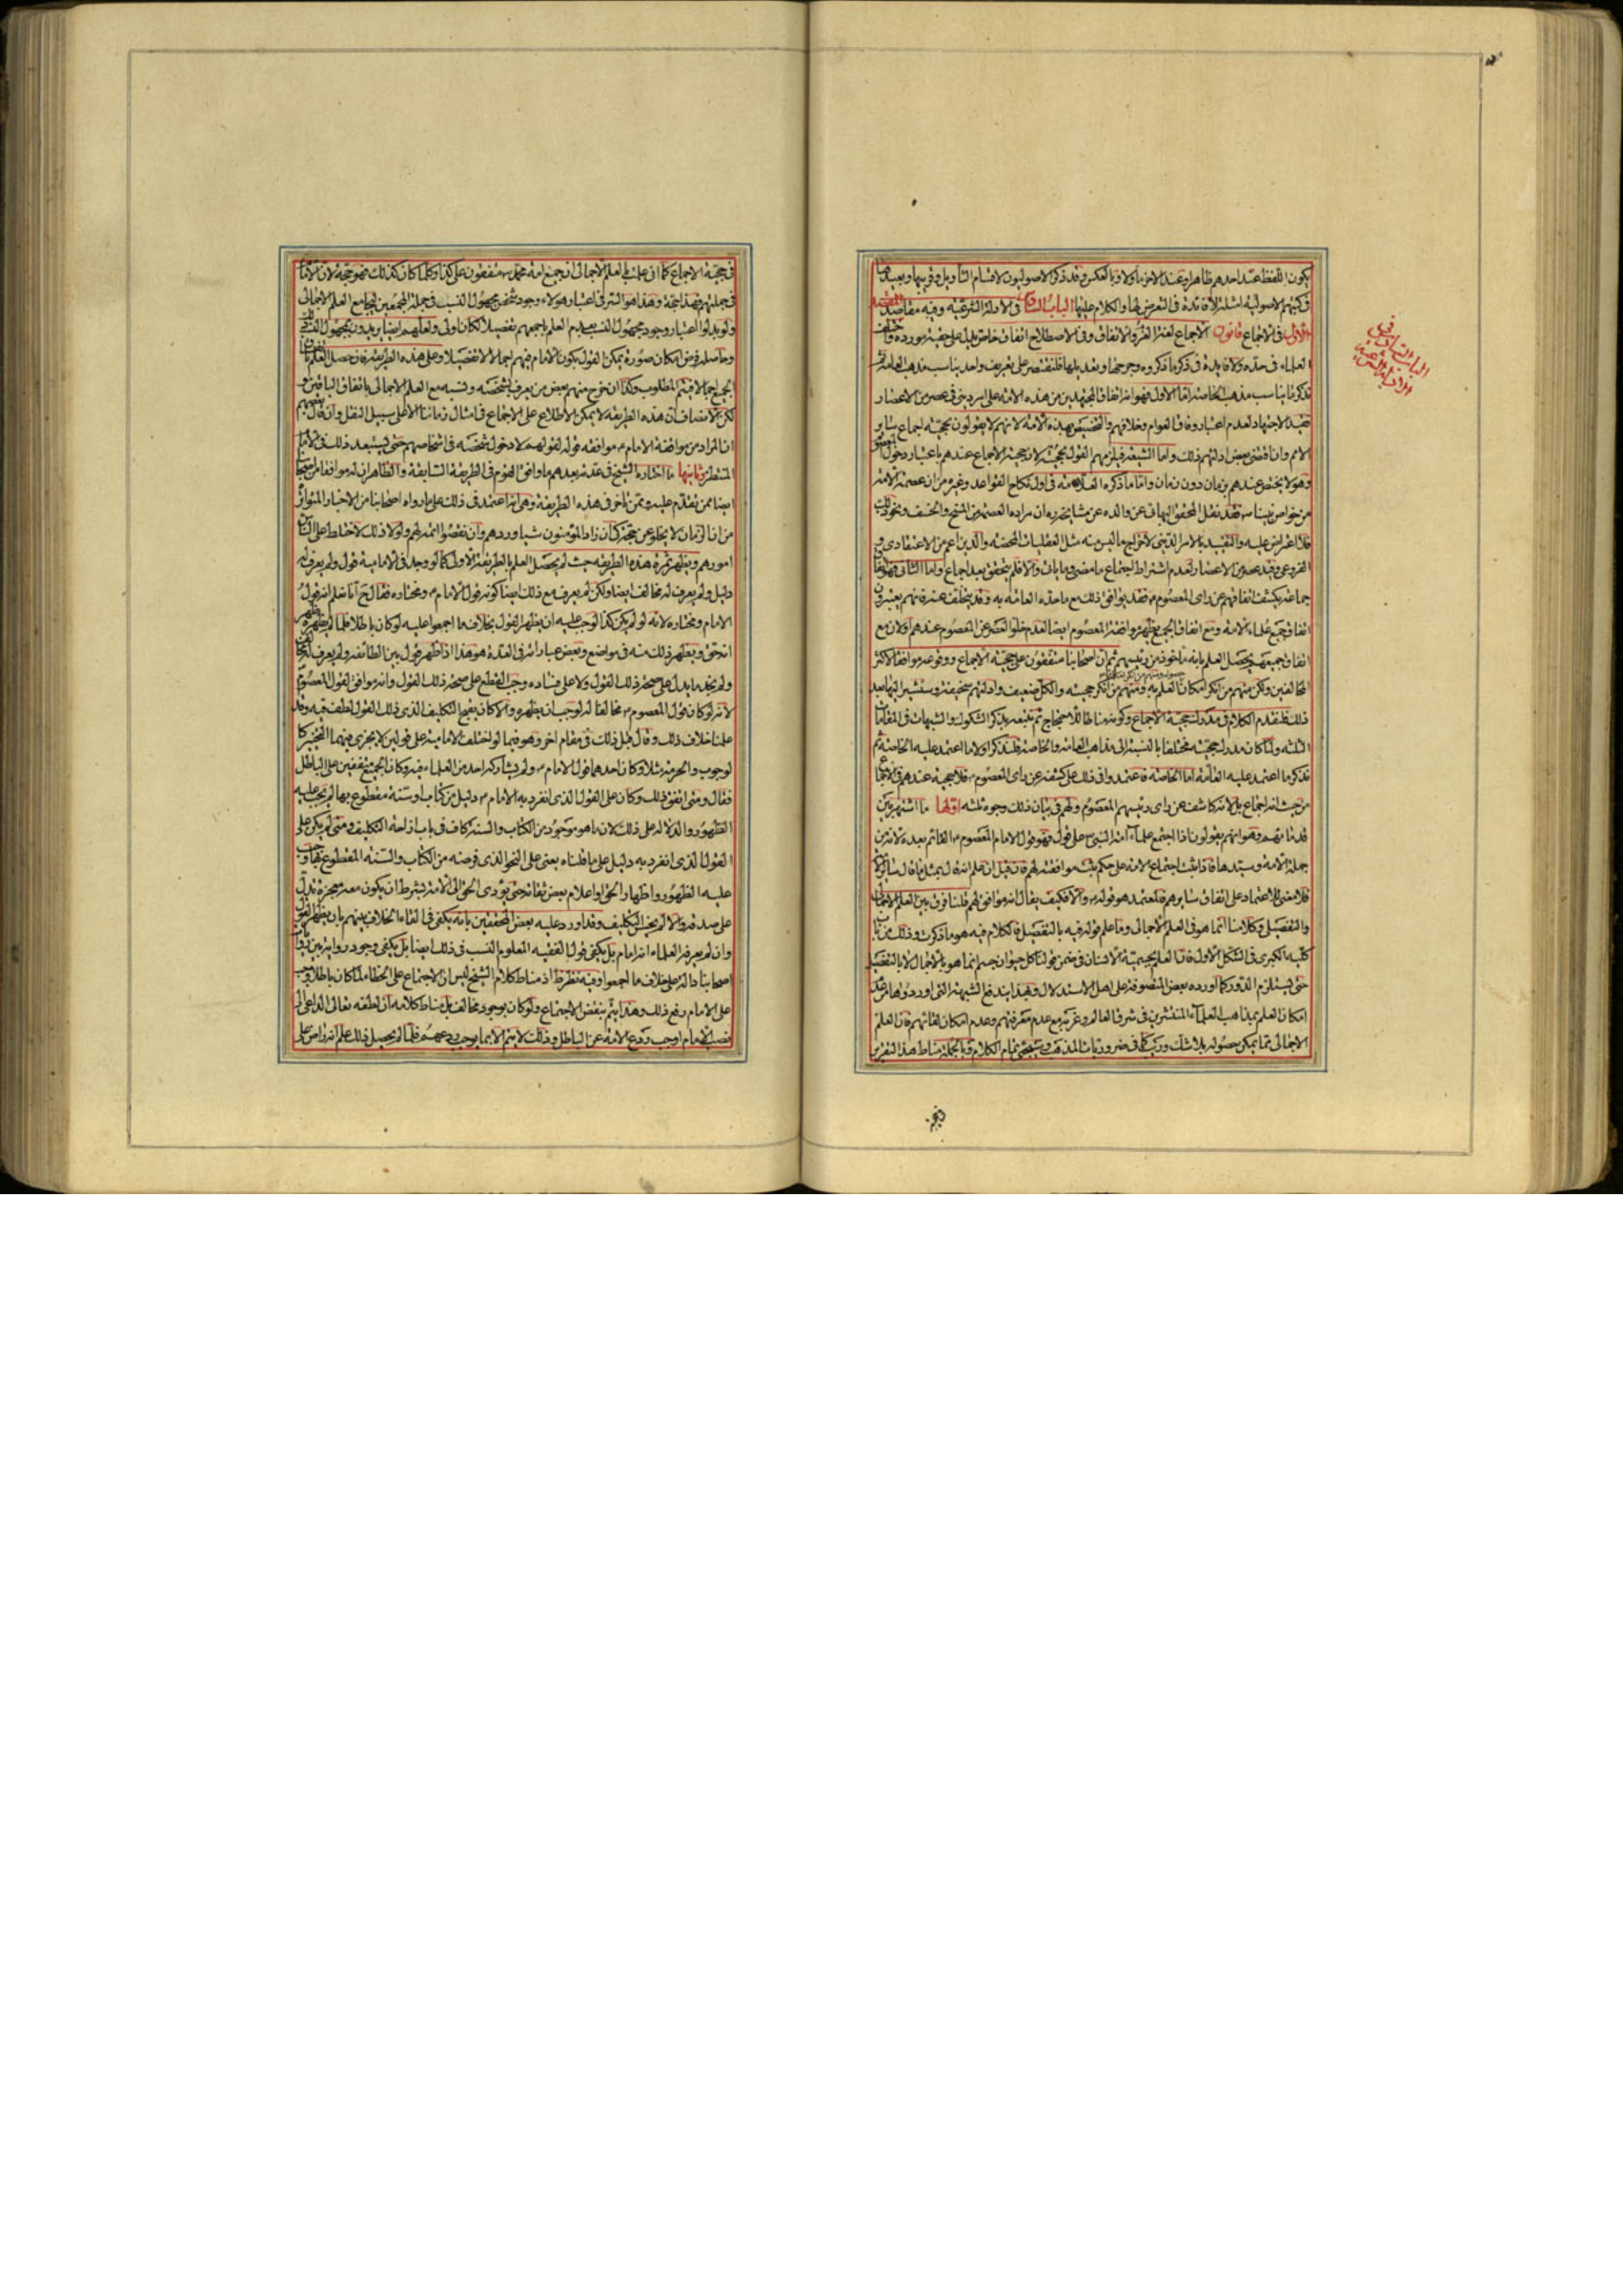 يكون اللفظ عند احدهم ظاهرا وعند الاخر مأولا وبالعكس وقد ذكر الاصوليون لاقسام التأويل وقريبها وبعيدها
فى كتبهم الاصولية امثلة لا فائدة فى التعرض لها والكلام عليها الباب الثانى فى الادلة الشرعية وفيه مقاصد المقصد
الاول فى الاجماع قانون الاجماع لغة العزم والاتفاق وفى الاصطلاح اتفاق خاص يدل على حقيته مورده واختلف
العلماء فى حده ولا فايدة فى ذكر ما ذكروه وجرحها وتعديلها فلنقتصر على تعريف واحد يناسب مذهب العامة ثم
نذكر ما يناسب مذهب الخاصة اما الاول فهو انه اتفاق المجتهدين من هذه الامة على امر دينى فى عصر من الاعصار
فقيد الاجتهاد لعدم اعتبار وفاق العوام وخلافهم والتخصيص بهذه الامة لانهم لا يقولون بحجية اجماع ساير
الامم وان اقتضى بعض ادلتهم ذلك واما الشيعة فيلزمهم القول بحجيته لان حجية الاجماع عندهم باعتبار دخول المعصوم
وهو لا يختص عندهم بزمان دون زمان واما ما ذكره العلامة فى اول نكاح القواعد وغيره من ان عصمة الامة
من خواص نبينا ص فقد نقل المحقق البهائى عن والده عن مشايخه ره ان مراده العصمة من المسخ والخسف ونحو ذلك
فلا اعتراض عليه والتقييد بالامر الدينى لاخراج ما ليس منه مثل العقليات المحضة والدين اعم من الاعتقادى و
الفروعى وقيد بعصر من الاعصار لعدم اشتراط اجتماع ما مضى وما يأتى والا فلم يتحقق بعد اجماع واما الثانى فهو اتفاق
جماعة يكشف اتفاقهم عن راى المعصوم ع فقد يوافق ذلك مع ما حده العامة به وقد يتخلف عنه فانهم يعتبرون
اتفاق جميع علماء الامة ومع اتفاق الجميع يظهر موافقة المعصوم ايضا لعدم خلو العصر عن المعصوم عندهم ولان مع
اتفاق جميعهم يحصل العلم بانه ماخوذ من رئيسهم ثم ان اصحابنا متفقون على حجية الاجماع ووقوعه موافقا لاكثر
المخالفين ولكن منهم من انكر امكان العلم به ومنهم من انكر حجيته والكل ضعيف وادلتهم سخيفة وسنشير اليها بعد
ذلك فلنقدم الكلام فى مدرك حجية الاجماع وكونه مناطا للاحتجاج ثم نتبعه بذكر الشكوك والشبهات فى المقامات
الثلثة ولما كان مدرك حجيته مختلفا بالنسبة الى مذاهب العامة والخاصة فلنذكر اولا ما اعتمد عليه الخاصة ثم
نذكر ما اعتمد عليه العامة اما الخاصة فاعتمدوا فى ذلك على كشفه عن راى المعصوم ع فلا حجية عندهم فى الاجماع
من حيث انه اجماع بل لانه كاشف عن راى رئيسهم المعصوم ولهم فى بيان ذلك وجوه ثلثة اولها ما اشتهر بين
قدمائهم وهو انهم يقولون اذا اجتمع علماء امة النبى ص على قول فهو قول الامام المعصوم ع القائم بعده لانه من
جملة الامة وسيدها فاذا ثبت اجتماع الامة على حكم ثبت موافقته لهم فان قيل ان علم انه قال بمثل ما قال ساير الامة
فلا معنى للاعتماد على اتفاق سايرهم فالمعتمد هو قوله ع والا فكيف يقال انه موافق لهم قلنا فرق بين العلم الاجمالى
والتفصيلى وكلامنا انما هو فى العلم الاجمالى وما علم قوله فيه بالتفصيل فالكلام فيه هو ما ذكرت وذلك من باب
كلية الكبرى فى الشكل الاول فان العلم بجسمية الانسان فى ضمن قولنا كل حيوان جسم انما هو بالاجمال لا بالتفصيل
حتى يستلزم الدور كما اورده بعض المتصوفة على اهل الاستدلال وبهذا يندفع الشبهة التى اوردوها من عدم
امكان العلم بمذاهب العلماء المنتشرين فى شرق العالم وغربه مع عدم معرفتهم وعدم امكان لقائهم فان العلم
الاجمالى مما يمكن حصوله بلا شك وريب كما فى ضروريات المذهب وسيجئ تمام الكلام وبالجملة مناط هذا التقرير
الباب الثانى فى
الادلة الشرعية
فى حجية الاجماع كما انى علمت بالعلم الاجمالى ان جميع امة محمد ص متفقون على كذا وكلما كان كذلك فهو حجة لان الامام
فى جملتهم فهذا حجة وهذا هو السر فى اعتبار هؤلاء وجود شخص مجهول النسب فى جملة المجمعين ليجامع العلم الاجمالى
ولو بدلوا اعتبار وجود مجهول النسب بعدم العلم باجمعهم تفصيلا لكان اولى ولعلهم ايضا يريدون بمجهول النسب ذلك
وحاصله فرض امكان صورة يمكن القول بكون الامام فيهم اجمالا لا تفصيلا وعلى هذه الطريقة فان حصل العلم باتفاق
الجميع اجمالا فيتم المطلوب وكذا ان خرج منهم بعض من يعرف بشخصه ونسبه مع العلم الاجمالى باتفاق الباقين و
لكن الانصاف ان هذه الطريقة لا يمكن الاطلاع على الاجماع فى امثال زماننا الا على سبيل النقل وان قال بعضهم
ان المراد من موافقة الامام ع موافقة قوله لقولهم لا دخول شخصه فى اشخاصهم حتى يستبعد ذلك فى الامام
المنتظر وثانيها ما اختاره الشيخ فى عدته بعدهم ما وافق القوم فى الطريقة السابقة والظاهر ان له موافقا من اصحابنا
ايضا ممن تقدم عليه وممن تأخر فى هذه الطريقة وهى انه اعتمد فى ذلك على ما رواه اصحابنا من الاخبار المتواترة
من ان الزمان لا يخلو عن حجة كى ان زاد المؤمنون شيئا وردهم وان نقصوا اتمه لهم ولولا ذلك لاختلط على الناس
امورهم ويظهر ثمرة هذه الطريقة حيث لم يحصل العلم بالطريقة الاولى كما لو وجد فى الامامية قول ولم يعرف له
دليل ولم يعرف له مخالف ايضا ولكن لم يعرف مع ذلك ايضا كونه قول الامام ع ومختاره فقال ح انا نعلم انه قول
الامام ومختاره لانه لو لم يكن كذا لوجب عليه ان يظهر القول بخلاف ما اجمعوا عليه لو كان باطلا فلما لم يظهره ظهر
انه حق ويظهر ذلك منه فى مواضع وبعض عباراته فى العدة هو هذا اذا ظهر قول بين الطائفة ولم يعرف له مخالف
ولم نجد ما يدل على صحة ذلك القول ولا على فساده وجب القطع على صحة ذلك القول وانه موافق لقول المعصوم
لانه لو كان قول المعصوم ع مخالفا له لوجب ان يظهره والا كان يقبح التكليف الذى ذلك القول لطف فيه وقد
علمنا خلاف ذلك وقال قبل ذلك فى مقام اخر وهو فيما لو اختلف الامامية على قولين لا يجرى فيهما التخيير كا
لوجوب والحرمة مثلا وكان احدهما قول الامام ع ولم يشاركه احد من العلماء فيه وكان الجميع متفقين على الباطل
فقال ومتى اتفق ذلك وكان على القول الذى انفرد به الامام ع دليل من كتاب او سنة مقطوع بها لم يجب عليه
الظهور والدلالة على ذلك لان ما هو موجود من الكتاب والسنة كاف فى باب ازاحة التكليف ومتى لم يكن على
القول الذى انفرد به دليل على ما قلناه يعنى على النحو الذى فرضه من الكتاب والسنة المقطوع بها وجب
عليه الظهور واظهار الحق او اعلام بعض ثقاته حتى يؤدى الحق الى الامة بشرط ان يكون معه معجزة تدل
على صدقه والا لم يحسن التكليف وقد اورد عليه بعض المحققين بانه يكفى فى القاء الخلاف بينهم بان يظهر القول
وان لم يعرفه العلماء انه امام بل يكفى قول الفقيه المعلوم النسب فى ذلك ايضا بل يكفى وجود رواية بين روايات
اصحابنا دالة على خلاف ما اجمعوا وفيه نظر ظ اذ مناط كلام الشيخ ليس ان الاجتماع على الخطاء لما كان باطلا وجب
على الامام دفع ذلك وهذا يتم بنقض الاجتماع ولو كان بوجود مخالف بل مناط كلامه ان لطفه تعالى الداعى الى
نصب الامام اوجب ردع الامة عن الباطل وذلك لا يتم الا بما يوجب ردعهم فلما لم يحصل ذلك علم انه راض على